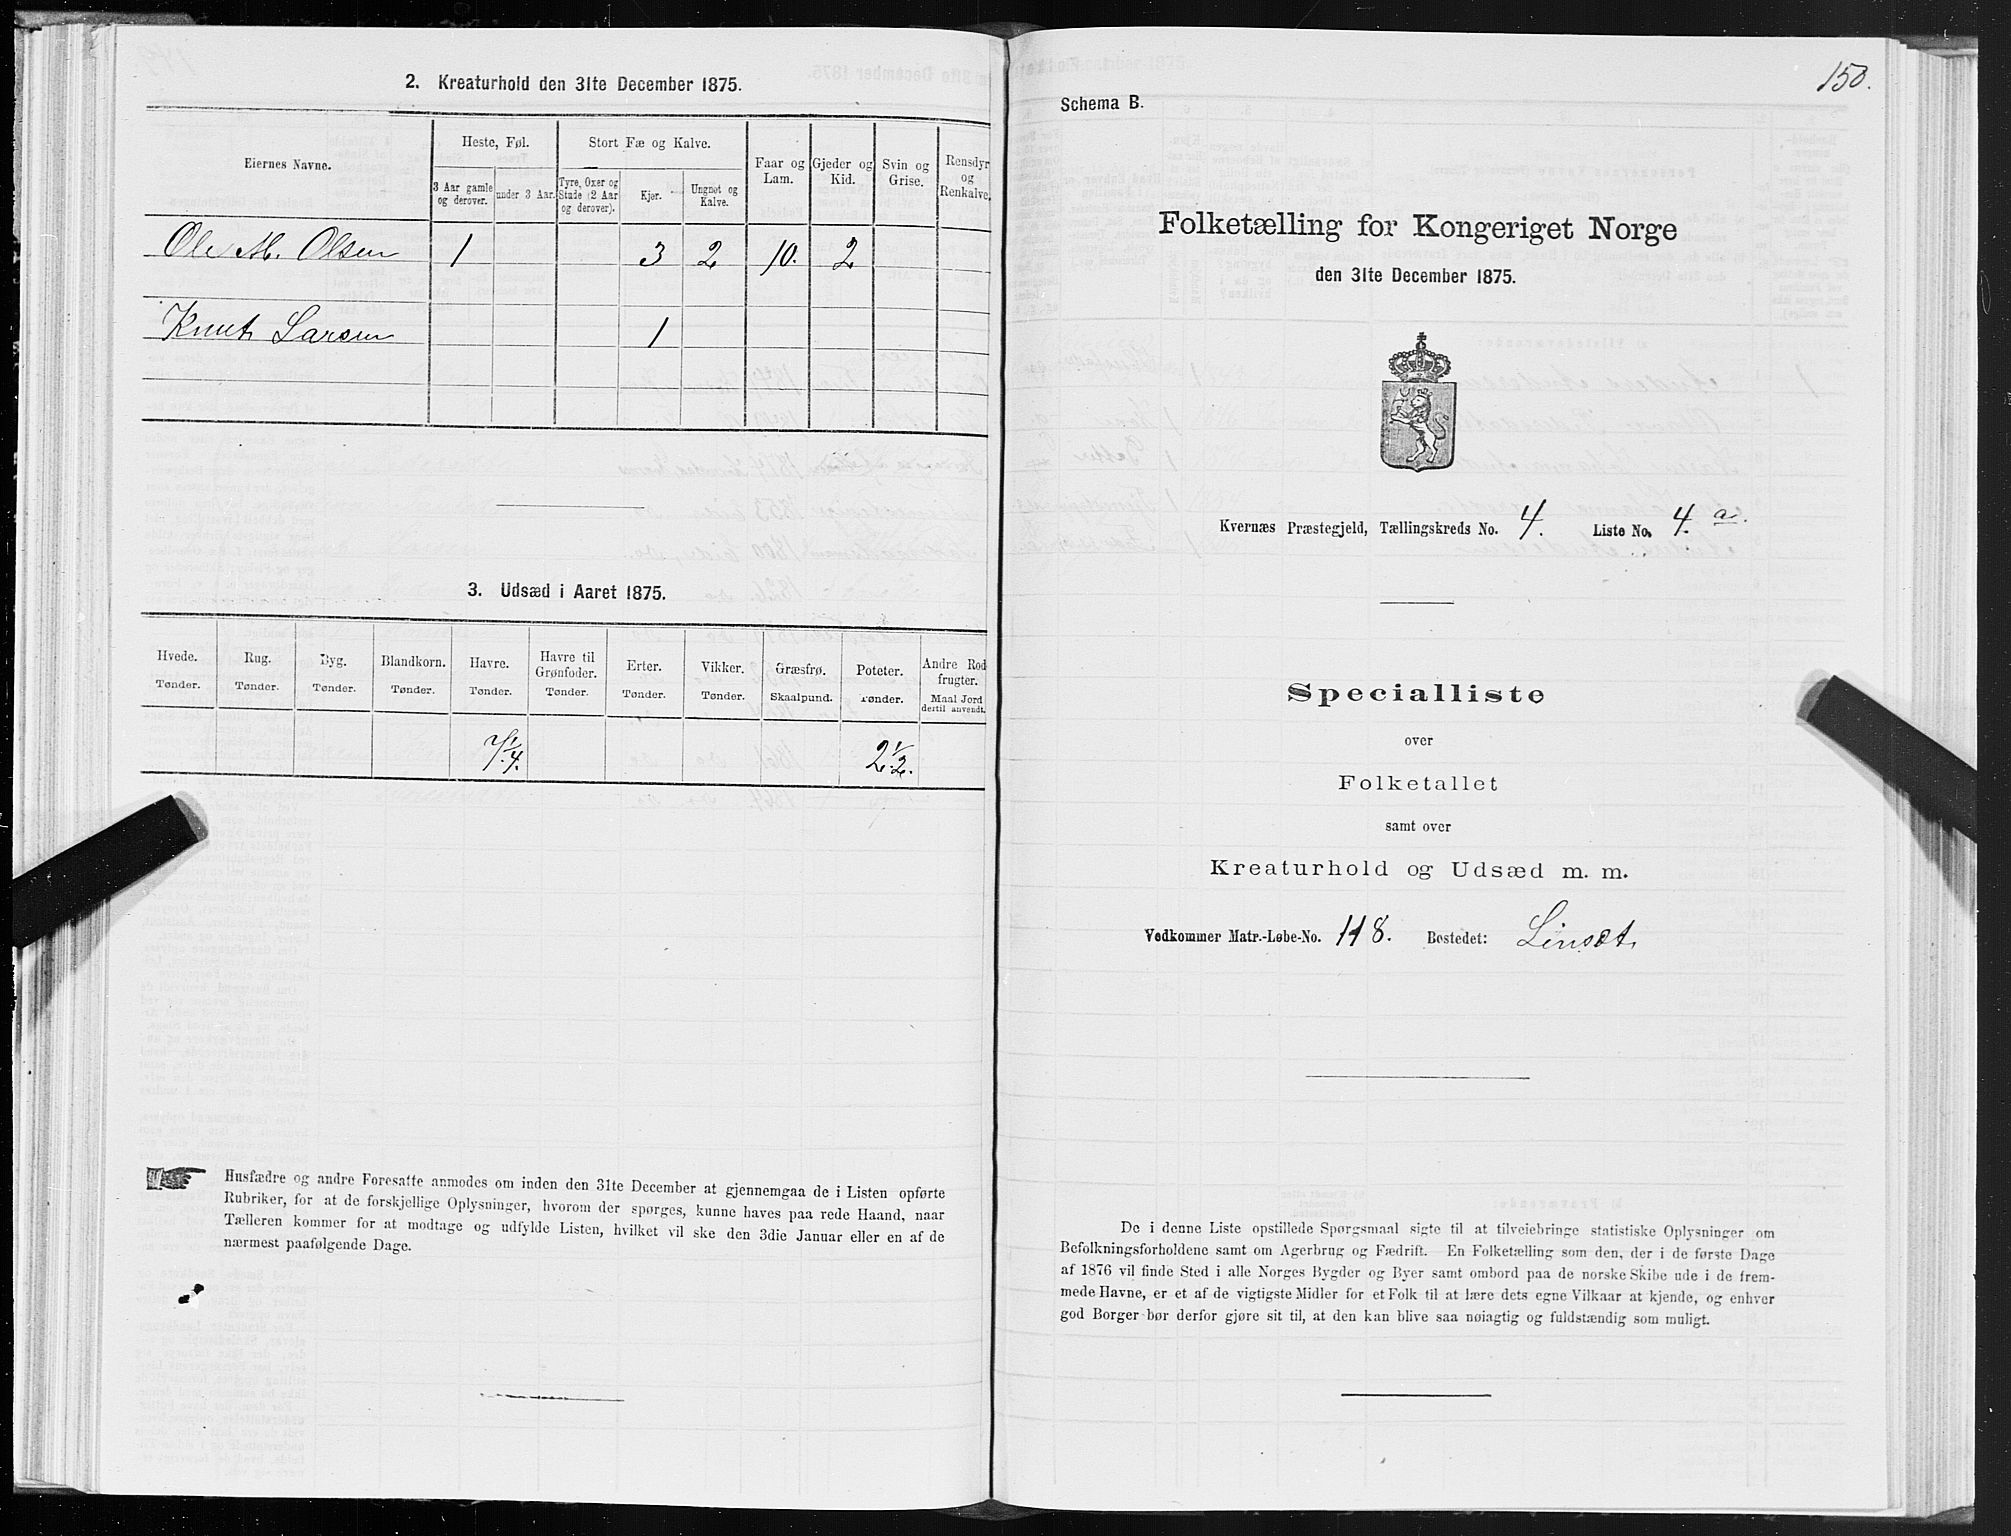 2. Kreaturhold den 31te December 1875.
Eiernes Navne.
Heste, Føl.
Stort Fæ og Kalve.
Faar og Lam.
Gjeder og Kid.
Svin og Grise.
Rensdyr og Renkalve.
3 Aar gamle og derover.
under 3 Aar.
Tyre, Oxer og Stude (2 Aar og derover).
Kjør.
Ungnøt og Kalve.
Ole M. Olsen 1 3 2 10. 2
Knut Larsen 1
3. Udsæd i Aaret 1875.
Hvede. Tønder.
Rug. Tønder.
Byg. Tønder.
Blandkorn. Tønder.
Havre. Tønder.
Havre til Grønfoder. Tønder.
Erter. Tønder.
Vikker. Tønder.
Græsfrø. Skaalpund.
Poteter. Tønder.
Andre Rodfrugter. Maal Jord dertil anvendt.
7 1/4. 2 1/2.
Husfædre og andre Foresatte anmodes om inden den 31te December at gjennemgaa de i Listen opførte
Rubriker, for at de forskjellige Oplysninger, hvorom der spørges, kunne haves paa rede Haand, naar
Tælleren kommer for at modtage og udfylde Listen, hvilket vil ske den 3die Januar eller en af de
nærmest paafølgende Dage.
150.
Schema B.
Folketælling for Kongeriget Norge
den 31te December 1875.
Kvernæs Præstegjeld, Tællingskreds No. 4. Liste No. 4. a.
Specialliste
over
Folketallet
samt over
Kreaturhold og Udsæd m. m.
Vedkommer Matr.-Løbe-No. 118. Bostedet: Linsæt.
De i denne Liste opstillede Spørgsmaal sigte til at tilveiebringe statistiske Oplysninger om
Befolkningsforholdene samt om Agerbrug og Fædrift. En Folketælling som den, der i de første Dage
af 1876 vil finde Sted i alle Norges Bygder og Byer samt ombord paa de norske Skibe ude i de frem-
mede Havne, er et af de vigtigste Midler for et Folk til at lære dets egne Vilkaar at kjende, og enhver
god Borger bør derfor gjøre sit til, at den kan blive saa nøiagtig og fuldstændig som muligt.